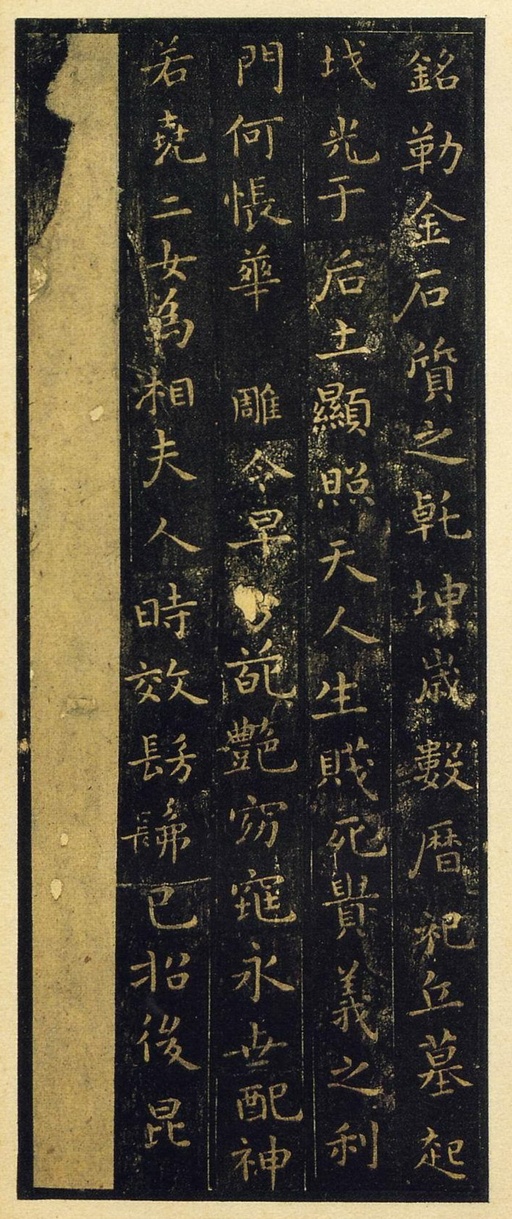 銘勒金石質之乹坤歲數曆祀丘墓起
光于后土顯照天人生賤死貴義之利
門何悵華雕令早葩艷窈窕永世配神
若堯二女為湘夫人時效髣髴已招後昆